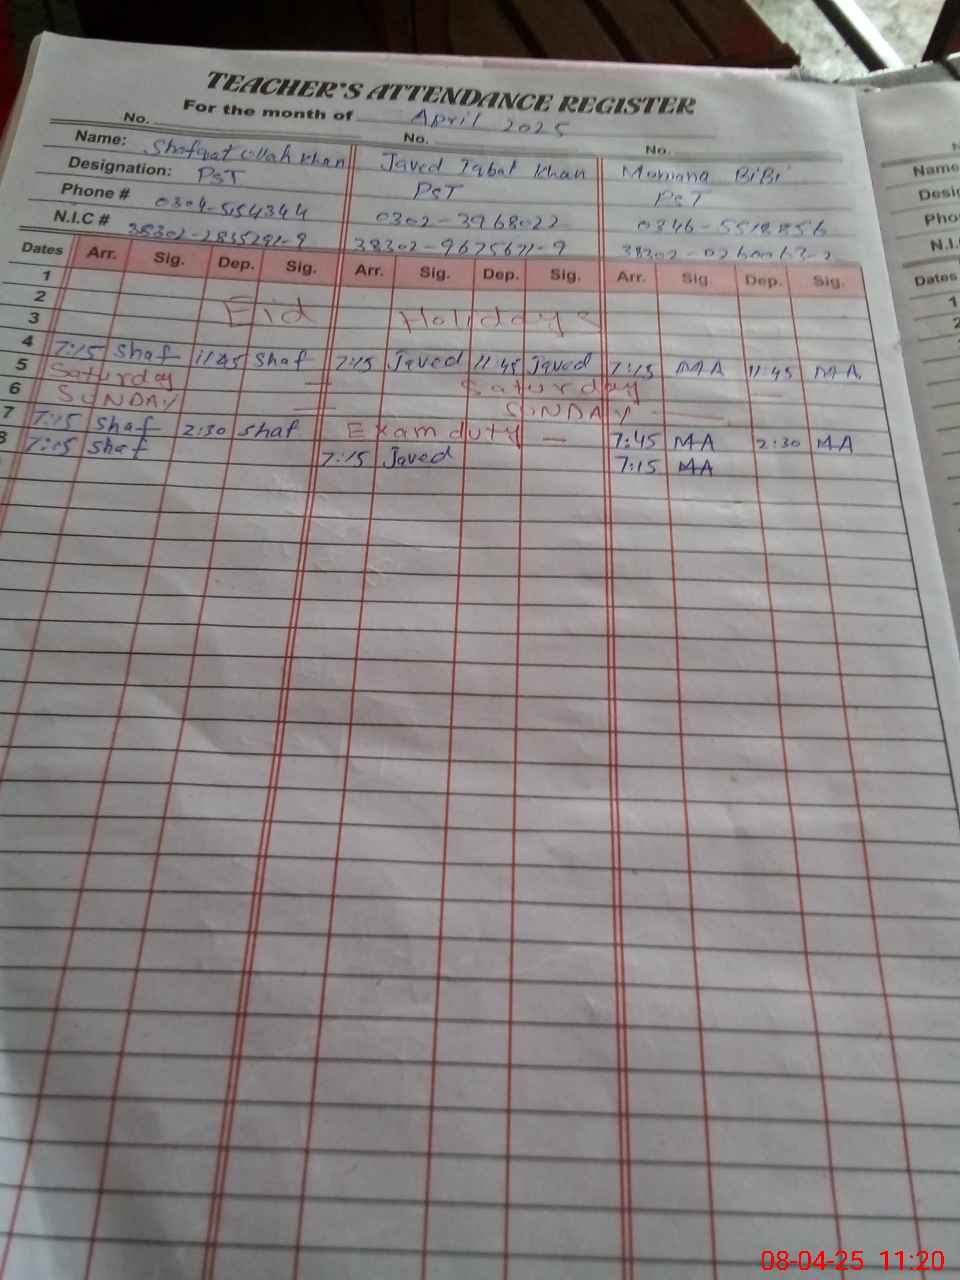 TEACHER'S ATTENDANCE REGISTER
For the month of April 2025
No. No. No.
Name: Shafqat ullah khan Javed Iqbal Khan Momana BiBi
Designation: PST PST PST
Phone # 0302-3968022
N.I.C # 38302-2835291-9 38302-9675671-9
Dates Arr. Sig. Dep. Sig. Arr. Sig. Dep. Sig. Arr. Sig. Dep. Sig.
1
2 Eid Holidays
3
4 7:15 Shaf 11:45 Shaf 7:15 Javed 11:45 Javed 7:15 MA 11:45 MA
5 Saturday — Saturday —
6 SUNDAY — SUNDAY —
7 7:15 Shaf 2:30 Shaf Exam duty — 7:45 MA 2:30 MA
8 7:15 Shaf 7:15 Javed 7:15 MA
Name
N.I.
Dates
1
08-04-25 11:20